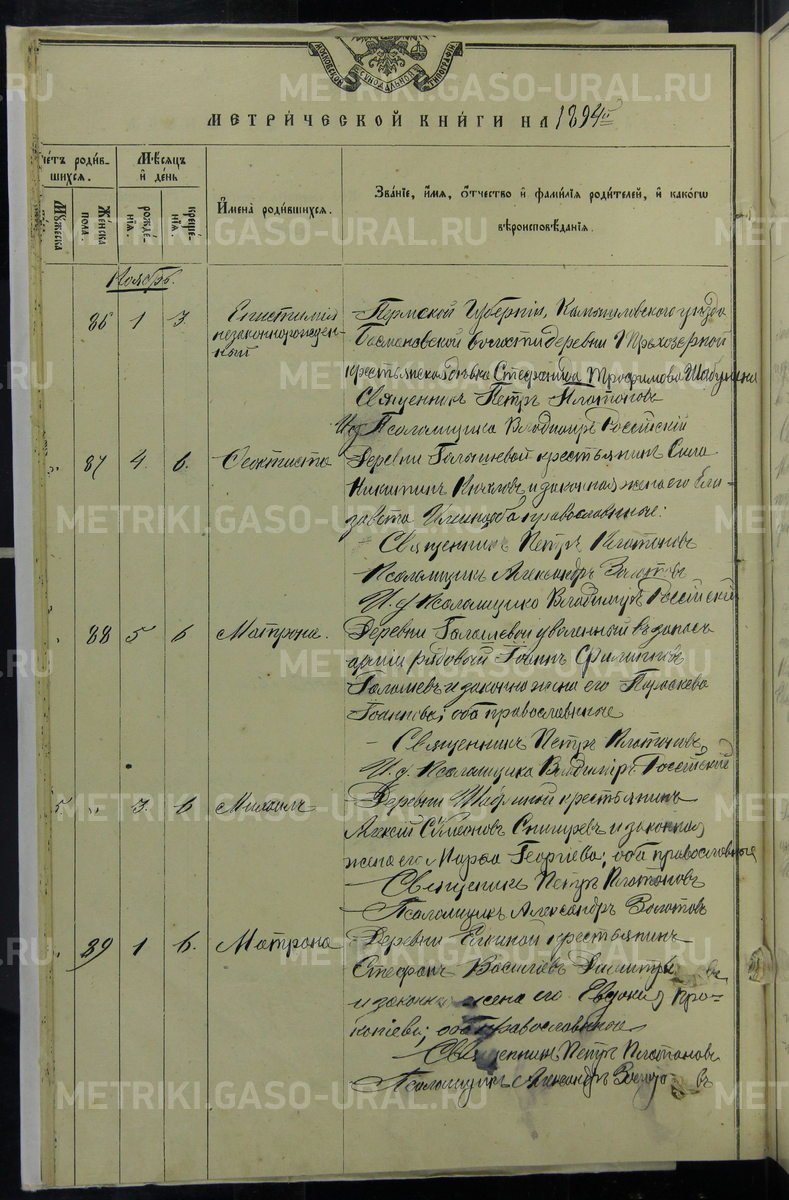 МОСКОВСКОЙ СУНОДАЛЬНОЙ ТИПОГРАФІИ
МЕТРИ́ЧЕСКОЙ КНИ́ГИ НА 1894й
Счетъ роди́вшихся.
Мѣ́сяцъ и҆ де́нь
И҆мена̀ роди́вшихся.
Зва́нїе, и҆́мя, ѻ҆́тчество и҆ фами́лїя роди́телей, и҆ како́гѡ вѣроисповѣ́данїя.
Мꙋжеска
Же́нска пола.
рожде́нїѧ.
креще́нїѧ.
Ноябрь.
86 1 3. Епистимія Пермской Губерніи, Камышловскаго уѣзда
незаконнорожден- Басмановской волости деревни Трехозерной
ный крестьянская дѣвка Стефанида Трофимова
Священникъ Петръ Платоновъ
И.д. Псаломщика Владиміръ Россійскій
87 4. 6. Феоктиста Деревни Галышевой крестьянинъ Сила
Никитинъ и законная жена его Ели-
завета оба православные:
Священникъ Петръ Платоновъ
Псаломщикъ Александръ Золотовъ
И.д. Псаломщика Владиміръ Россійскій
88 5 6 Матрона. Деревни Галышевой уволенный въ запасъ
арміи рядовой Іоаннъ Филипповъ
Галышевъ и законная жена его Параскева
Іоаннова; оба православные
Священникъ Петръ Платоновъ
И.д. Псаломщика Владиміръ Россійскій
3. 6 Михаилъ Деревни крестьянинъ
Алексій Симеоновъ Снигиревъ и законная
жена его Марѳа Георгіева; оба православные
Священникъ Петръ Платоновъ
Псаломщикъ Александръ Золотовъ
89 1 6. Матрона Деревни Елкиной крестьянинъ
Стефанъ Василіевъ
и законная жена его Евдокия Про-
копіева; оба православные
Священникъ Петръ Платоновъ
Псаломщикъ Александръ Золотовъ
METRIKI.GASO-URAL.RU